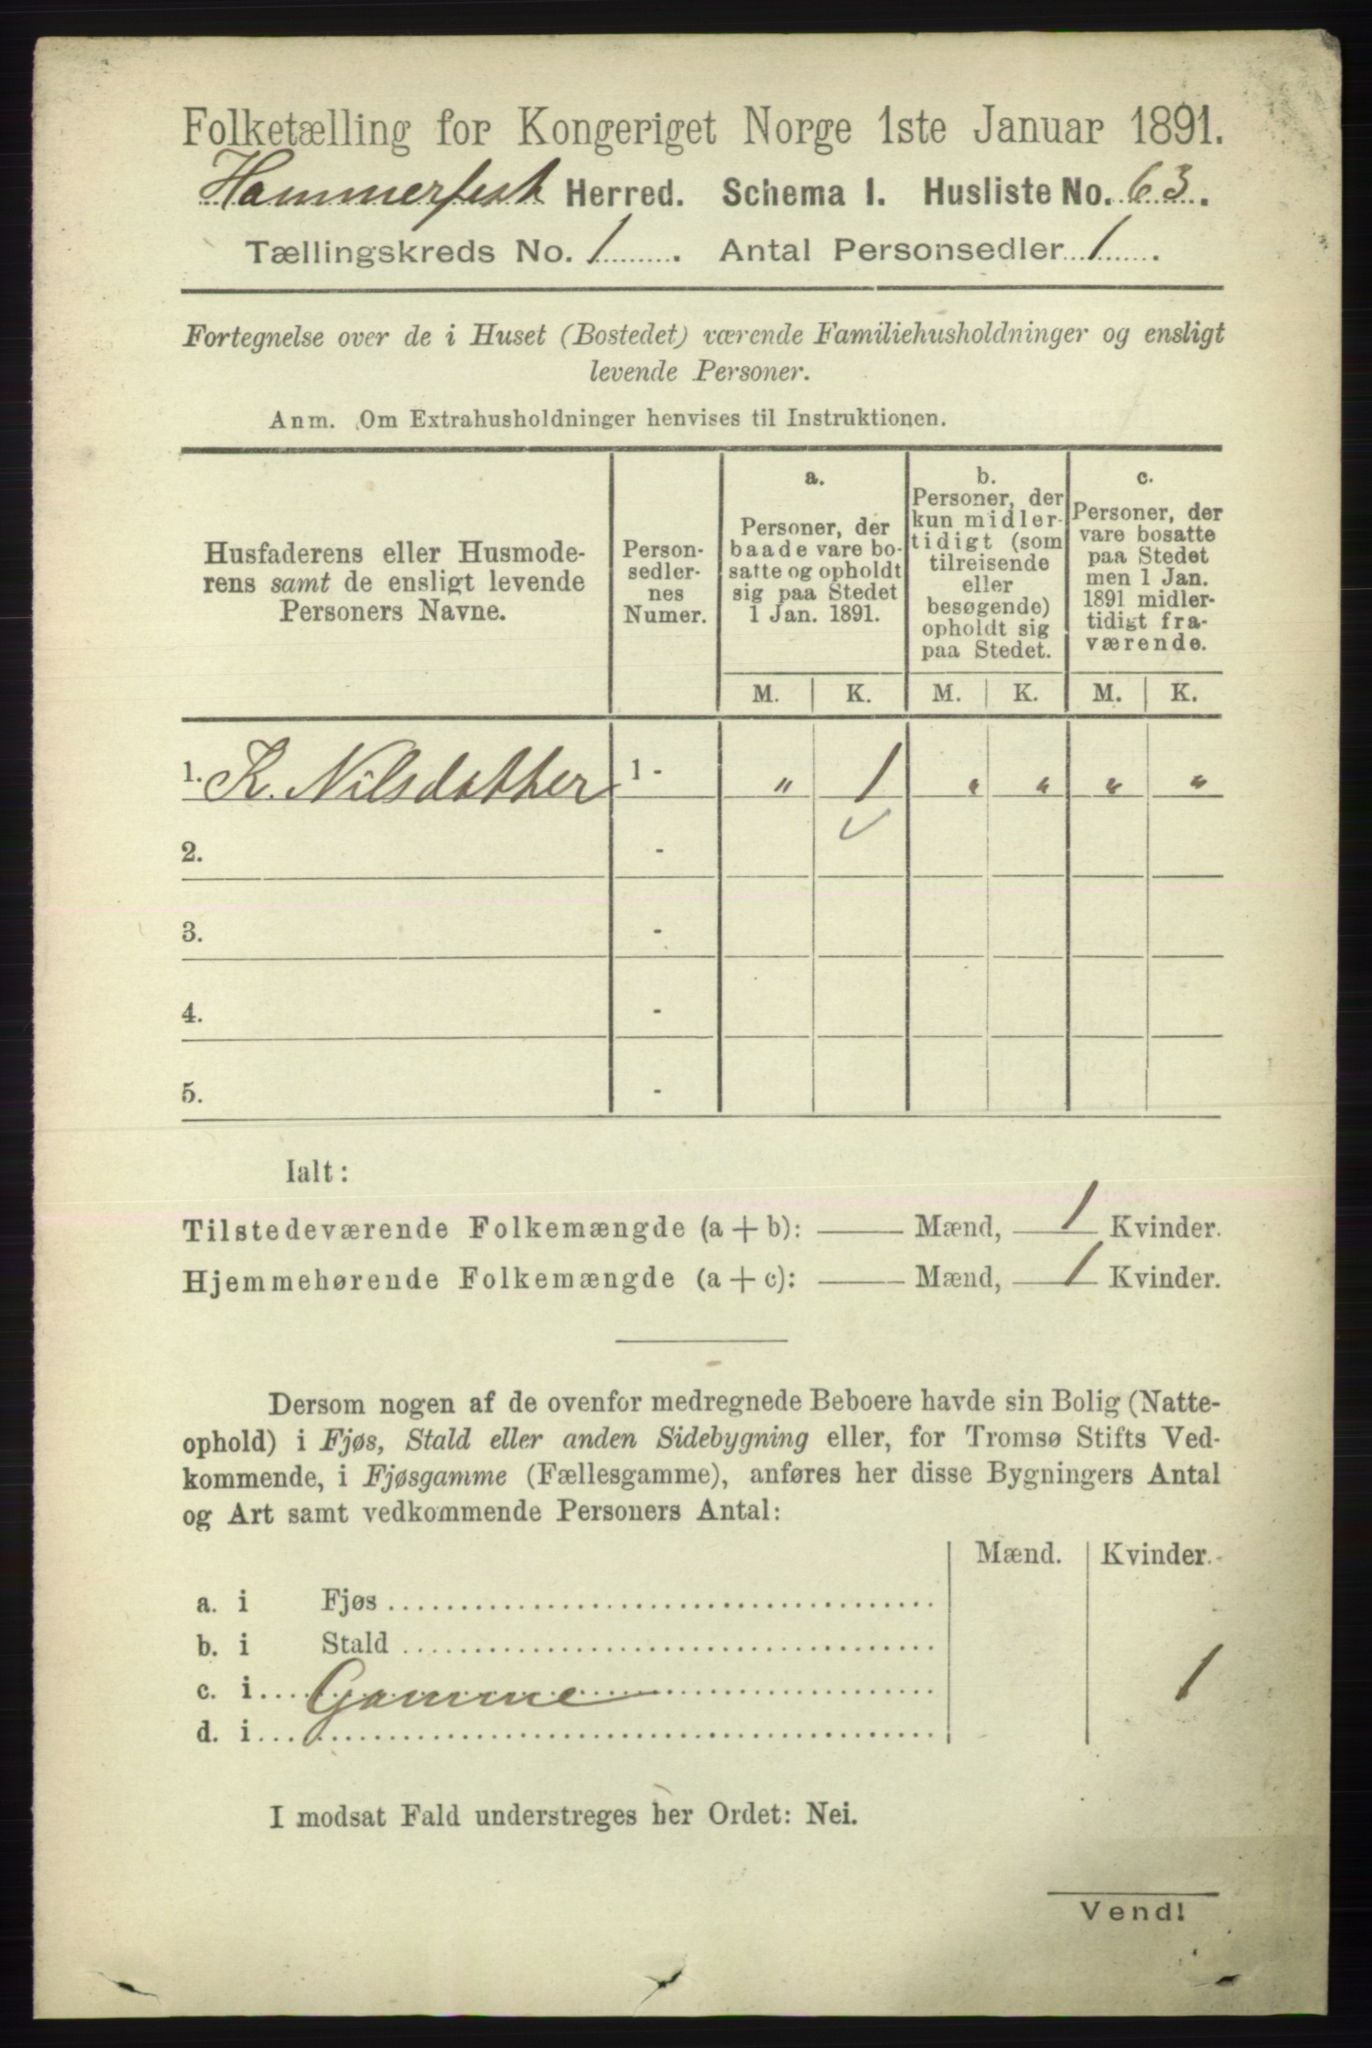 Folketælling for Kongeriget Norge 1ste Januar 1891.
Hammerfest Herred. Schema I. Husliste No. 63.
Tællingskreds No. 1. Antal Personsedler 1.
Fortegnelse over de i Huset (Bostedet) værende Familiehusholdninger og ensligt
levende Personer.
Anm. Om Extrahusholdninger henvises til Instruktionen.
Husfaderens eller Husmode-
rens samt de ensligt levende
Personers Navne.
Person-
sedler-
nes
Numer.
a.
Personer, der
baade vare bo-
satte og opholdt
sig paa Stedet
1 Jan. 1891.
b.
Personer, der
kun midler-
tidigt (som
tilreisende
eller
besøgende)
opholdt sig
paa Stedet.
c.
Personer, der
vare bosatte
paa Stedet
men 1 Jan.
1891 midler-
tidigt fra-
værende.
M. K. M. K. M. K.
1. K. Nilsdatther 1 - " 1 " " " "
2. - ✓
3. -
4. -
5. -
Ialt:
Tilstedeværende Folkemængde (a + b): —— Mænd, 1 Kvinder.
Hjemmehørende Folkemængde (a + c): —— Mænd, 1 Kvinder.
Dersom nogen af de ovenfor medregnede Beboere havde sin Bolig (Natte-
ophold) i Fjøs, Stald eller anden Sidebygning eller, for Tromsø Stifts Ved-
kommende, i Fjøsgamme (Fællesgamme), anføres her disse Bygningers Antal
og Art samt vedkommende Personers Antal:
Mænd. Kvinder.
a. i Fjøs
b. i Stald
c. i Gamme 1
d. i
I modsat Fald understreges her Ordet: Nei.
Vend!